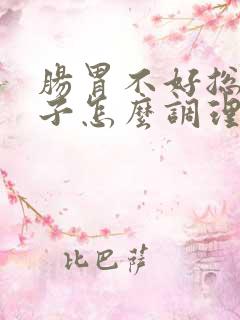 腸胃不好總
子怎麼調理
比巴薩